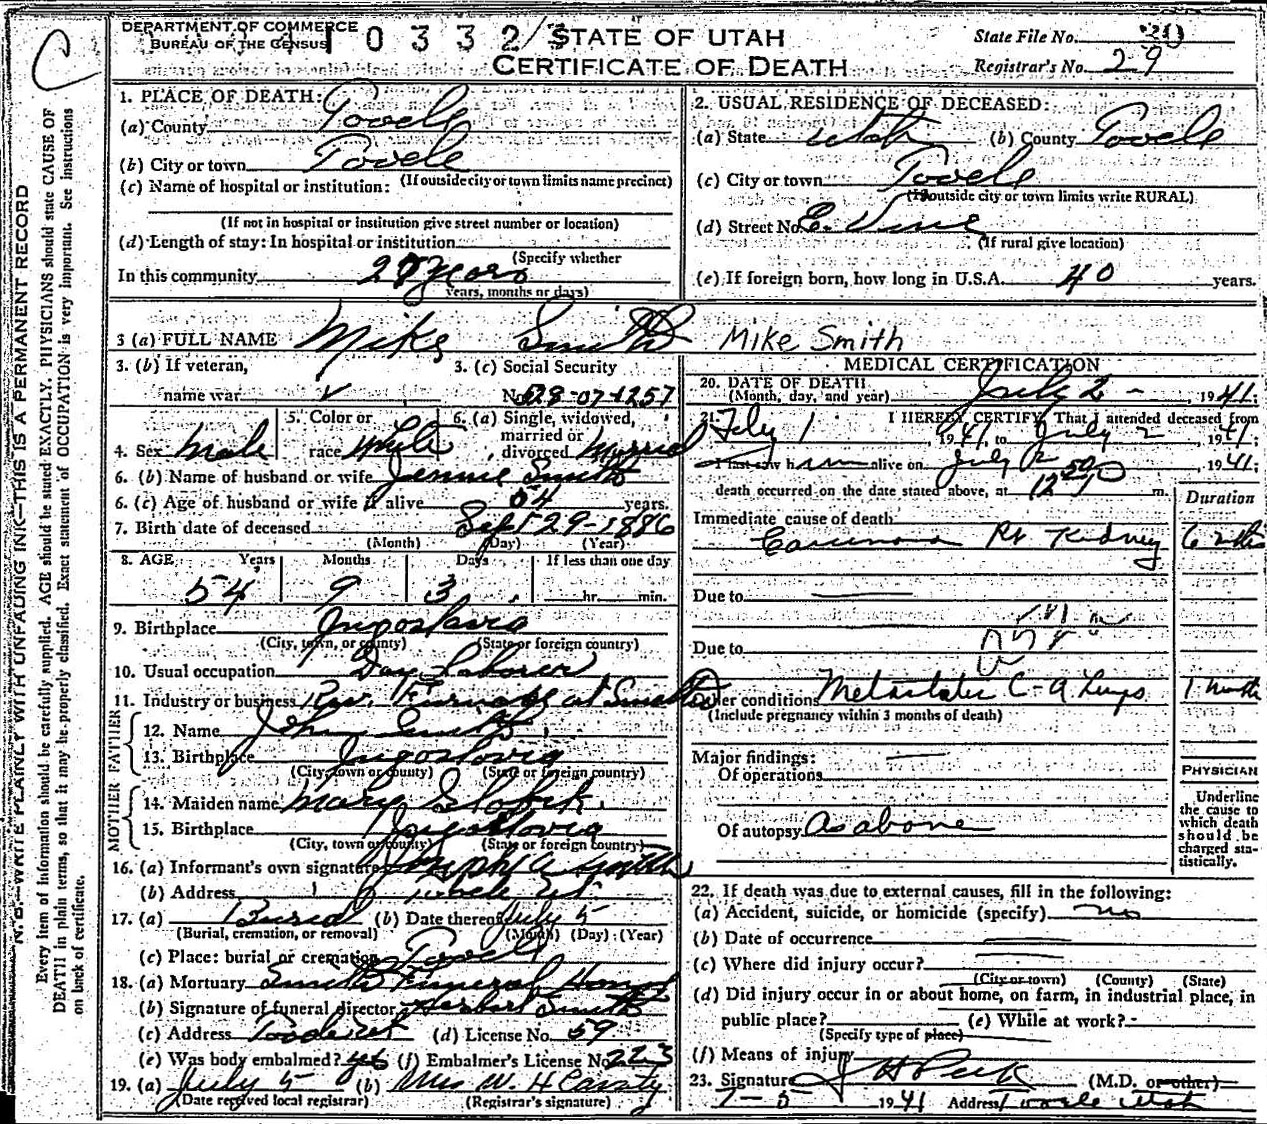 C
DEPARTMENT OF COMMERCE
BUREAU OF THE CENSUS
10332
STATE OF UTAH
CERTIFICATE OF DEATH
State File No. 30
Registrar's No. 29
N. B.—WRITE PLAINLY WITH UNFADING INK—THIS IS A PERMANENT RECORD
Every item of information should be carefully supplied. AGE should be stated EXACTLY. PHYSICIANS should state CAUSE OF
DEATH in plain terms, so that it may be properly classified. Exact statement of OCCUPATION is very important. See instructions
on back of certificate.
1. PLACE OF DEATH:
(a) County Tooele
(b) City or town Tooele
(If outside city or town limits name precinct)
(c) Name of hospital or institution:
(If not in hospital or institution give street number or location)
(d) Length of stay: In hospital or institution
(Specify whether
In this community 27 years
years, months or days)
2. USUAL RESIDENCE OF DECEASED:
(a) State Utah (b) County Tooele
(c) City or town Tooele
(If outside city or town limits write RURAL)
(d) Street No. E. Vine
(If rural give location)
(e) If foreign born, how long in U.S.A. 40 years.
3 (a) FULL NAME Mike Smith Mike Smith
3. (b) If veteran,
name war
3. (c) Social Security
No. 528-07-1257
4. Sex Male
5. Color or
race White
6. (a) Single, widowed,
married or
divorced Married
6. (b) Name of husband or wife Jennie Smith
6. (c) Age of husband or wife if alive 54 years.
7. Birth date of deceased Sept 29-1886
(Month) (Day) (Year)
8. AGE Years Months Days If less than one day
54 9 3 hr. min.
9. Birthplace Jugoslavia
(City, town, or county) (State or foreign country)
10. Usual occupation Day Laborer
11. Industry or business Rev. Furnace at Smelter
FATHER
12. Name John Smith
13. Birthplace Jugoslavia
(City, town or county) (State or foreign country)
MOTHER
14. Maiden name Mary
15. Birthplace Jugoslavia
(City, town or county) (State or foreign country)
16. (a) Informant's own signature Joseph A Smith
(b) Address Tooele Ut.
17. (a) Burial (b) Date thereof July 5
(Burial, cremation, or removal) (Month) (Day) (Year)
(c) Place: burial or cremation Tooele
18. (a) Mortuary Smith Funeral Home
(b) Signature of funeral director Herbert Smith
(c) Address Tooele Ut (d) License No. 59
(e) Was body embalmed? yes (f) Embalmer's License No. 223
19. (a) July 5 (b) Mrs W. H.
(Date received local registrar) (Registrar's signature)
MEDICAL CERTIFICATION
20. DATE OF DEATH
(Month, day, and year) July 2 - , 1941;
21. I HEREBY CERTIFY, That I attended deceased from
Feby 1 1941, to July 2, 1941;
I last saw him alive on July 2, 1941;
death occurred on the date stated above, at 12 50 m.
Duration
Immediate cause of death
Carcinoma Rt Kidney 6 mths
Due to
Due to
Other conditions Metastatic C-a Lungs 1 month
(Include pregnancy within 3 months of death)
Major findings:
Of operations
Of autopsy As above
PHYSICIAN
Underline
the cause to
which death
should be
charged sta-
tistically.
22. If death was due to external causes, fill in the following:
(a) Accident, suicide, or homicide (specify) no
(b) Date of occurrence
(c) Where did injury occur?
(City or town) (County) (State)
(d) Did injury occur in or about home, on farm, in industrial place, in
public place? (e) While at work?
(Specify type of place)
(f) Means of injury
23. Signature J H Peck (M.D. or other)
7-5 1941 Address Tooele Utah